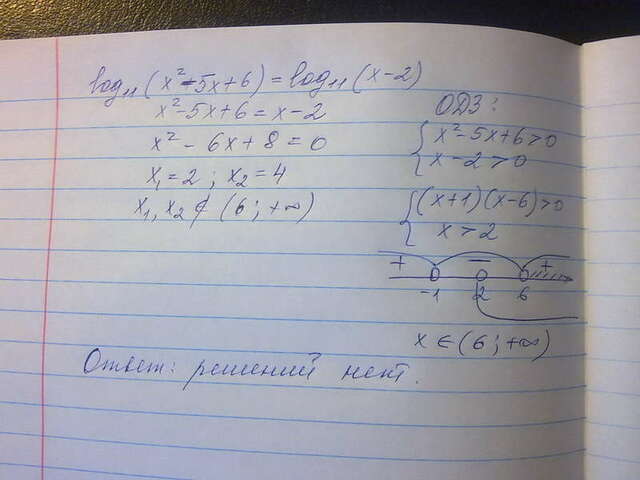 log₁₁(x²-5x+6)=log₁₁(x-2)
x²-5x+6=x-2
x²-6x+8=0
x₁=2; x₂=4
x₁, x₂ ∉ (6;+∞)
ОДЗ:
{x²-5x+6>0
x-2>0
{(x+1)(x-6)>0
x>2
+ − +
-1 2 6
x∈(6;+∞)
Ответ: решений нет.